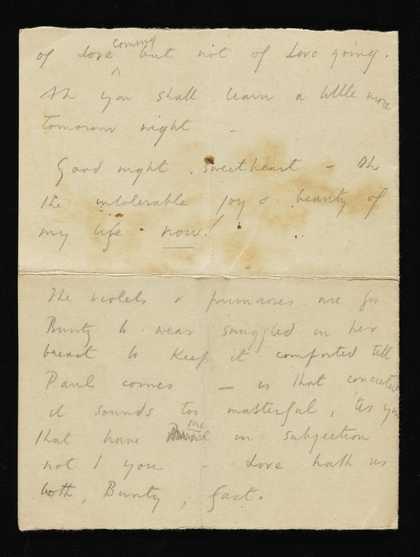 of love coming but not of Love going.
Ah you shall learn a little more
tomorrow night —
Good night sweetheart — Oh
the intolerable joy & beauty of
my life now!
The violets & primroses are for
Bunty to wear snuggled in her
breast to keep it comforted till
Paul comes — is that conceited
it sounds too masterful, tis you
that have me in subjection
not I you — Love hath us
both, Bunty, fast.